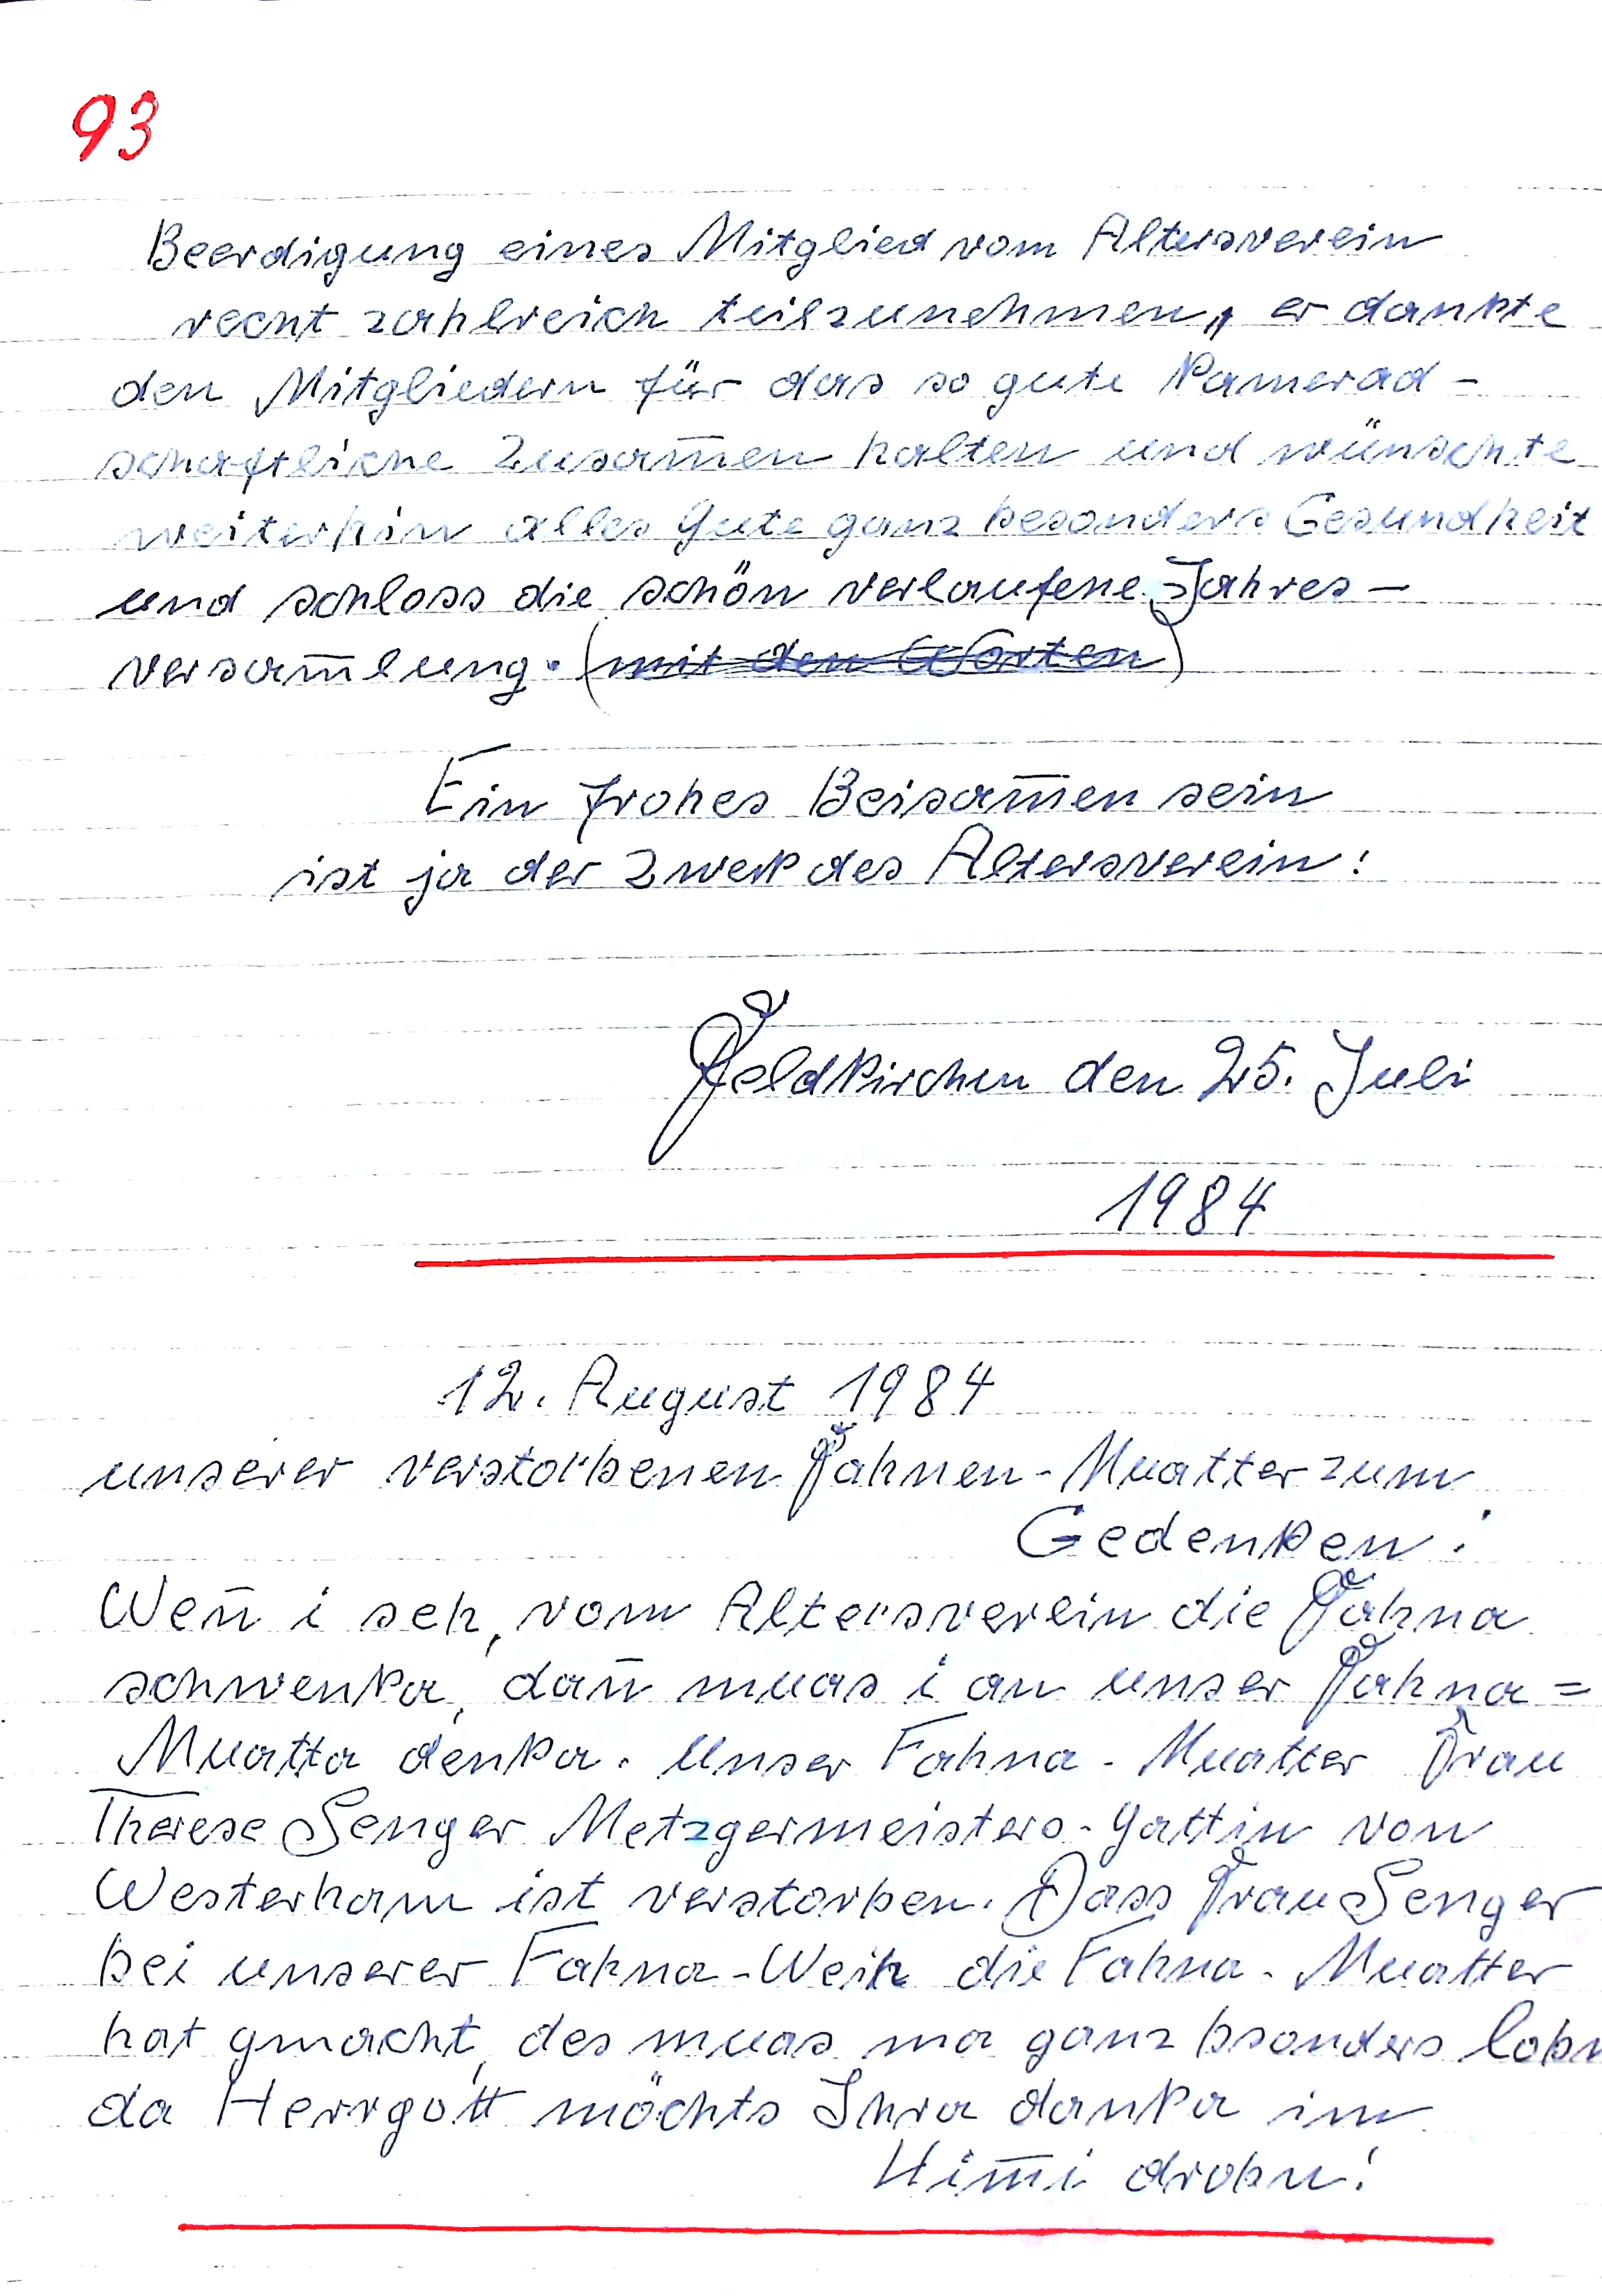 93
Beerdigung eines Mitglied vom Altersverein
recht zahlreich teilzunehmen„ er dankte
den Mitgliedern für das so gute Kamerad-
schaftliche Zusam̅en halten und wünschte
weiterhin alles Gute ganz besonders Gesundheit
und schloss die schön verlaufene Jahres-
versam̅lung. (mit den Worten)
Ein frohes Beisam̅en sein
ist ja der Zwek des Altersverein!
Feldkirchen den 25. Juli
1984
12. August 1984
unserer verstorbenen Fahnen-Muatter zum
Gedenken!
Wen̅ i seh, vom Altersverein die Fahna
schwenka, dan̅ muas i an unser Fahna=
Muatta denka. Unser Fahna-Muatter Frau
Therese Senger Metzgermeisters-Gattin von
Westerham ist verstorben. Dass Frau Senger
bei unserer Fahna-Weih die Fahna-Muatter
hat gmacht, des muas ma ganz bsonders lobn
da Herrgott möchts Ihra danka im
Him̅i drobn!